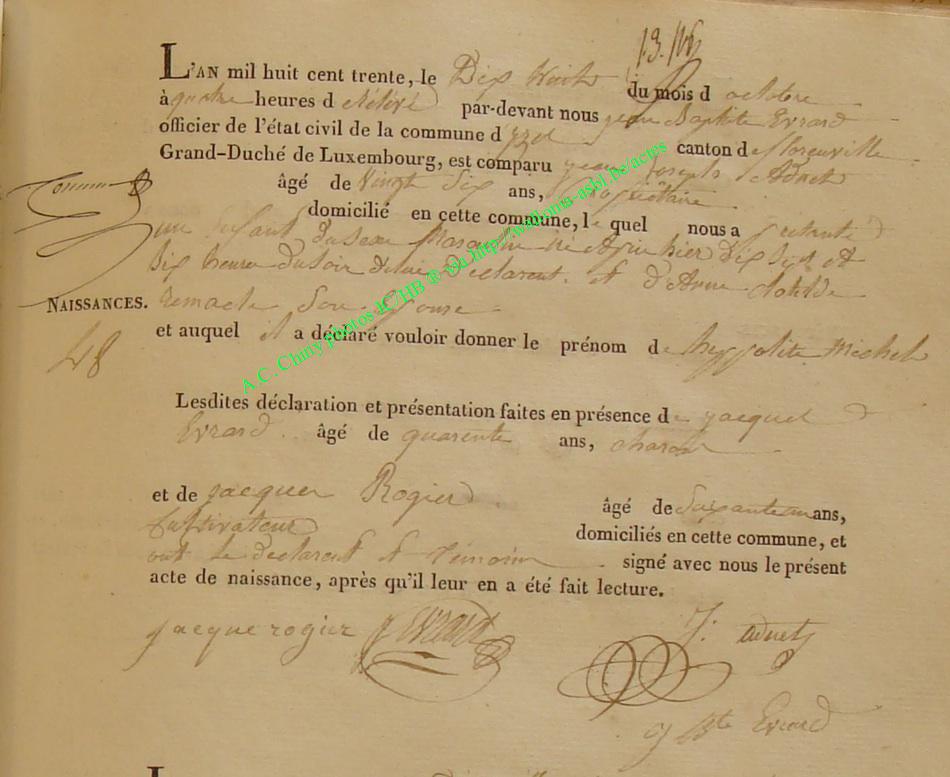 L'AN mil huit cent trente, le Dix huit du mois d octobre
à quatre heures d rélévé par-devant nous jean Baptiste Evrard
officier de l'état civil de la commune d'yzel canton de florenville
Grand-Duché de Luxembourg, est comparu jean Joseph Adnet
âgé de vingt Six ans, propriétaire
domicilié en cette commune, le quel nous a
un Enfant du Sexe Masculin né hier Dix Sept
Six heures du Soir de lui Declarant et d'Anne Clotilde
NAISSANCES. remacle Son Epouse
48
et auquel il a déclaré vouloir donner le prénom de hyppolite Michel
Lesdites déclaration et présentation faites en présence de jacques
Evrard âgé de quarente ans, charon
et de jacques Rogier âgé de ans,
Cultivateur domiciliés en cette commune, et
ont le declarant et témoins signé avec nous le présent
acte de naissance, après qu'il leur en a été fait lecture.
jacque rogier J Evrard J. adnet
j Bte Evrard
A.C. Chiny photos IC/HB ® via http://wallonia-asbl.be/actes